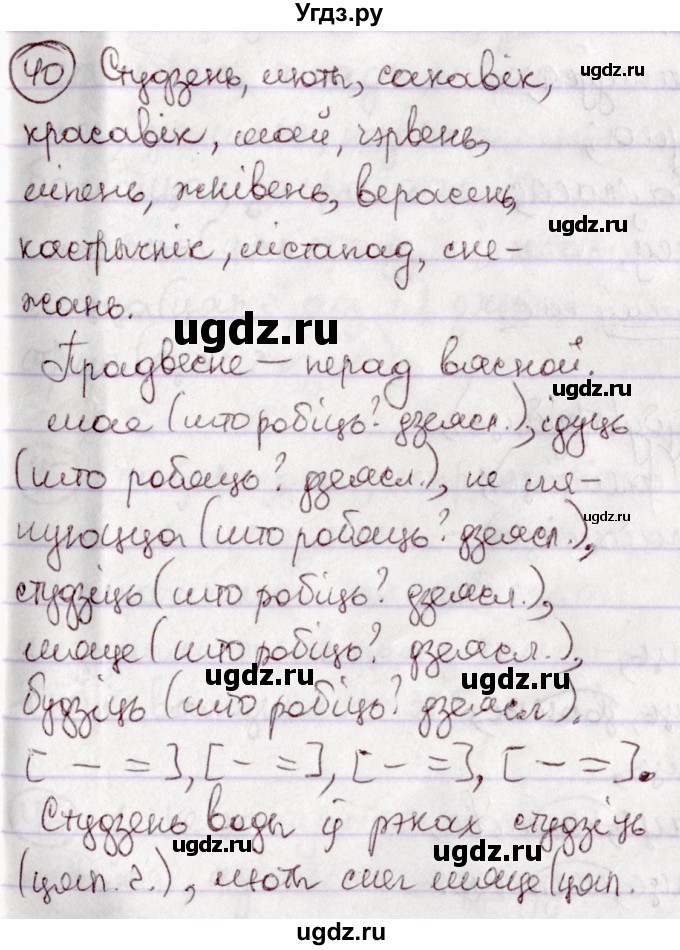 Угдз.ру
40 Студзень, люты, сакавік,
красавік, май, чэрвень,
ліпень, жнівень, верасень,
кастрычнік, лістапад, сне-
жань.
Прадвесне – перад вясной.
мае (што робіць? дзеясл.), ідуць
(што робяць? дзеясл.), не мя-
нуюцца (што робяць? дзеясл.),
студзіць (што робіць? дзеясл.),
мяце (што робіць? дзеясл.),
будзіць (што робіць? дзеясл.).
[ – = ], [ – = ], [ – = ], [ – = ].
Студзень воды ў рэках студзіць
(цяп. ч.), люты снег мяце (цяп.
ugdz.ru
ugdz.ru
ugdz.ru
ugdz.ru
ugdz.ru
ugdz.ru
ugdz.ru
ugdz.ru
ugdz.ru
ugdz.ru
ugdz.ru
ugdz.ru